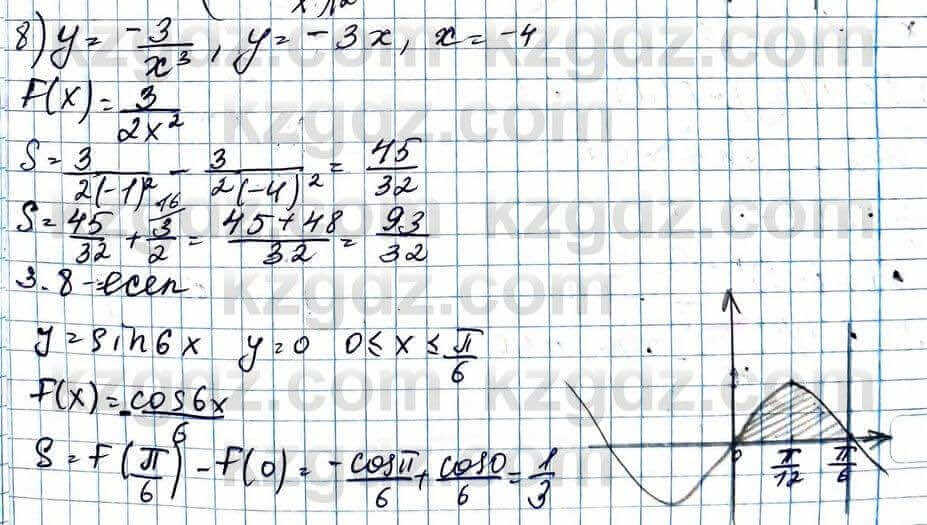 8) y = -3/x³, y = -3x, x = -4
F(x) = 3/2x²
S = 3/2(-1)² - 3/2(-4)² = 45/32
S = 45/32 + 3/2 ¹⁶ = 45+48/32 = 93/32
3.8-есеп
y = sin6x y = 0 0 ≤ x ≤ π/6
F(x) = -cos6x/6
S = F(π/6) - F(0) = -cosπ/6 + cos0/6 = 1/3
0 π/12 π/6
kzgdz.com